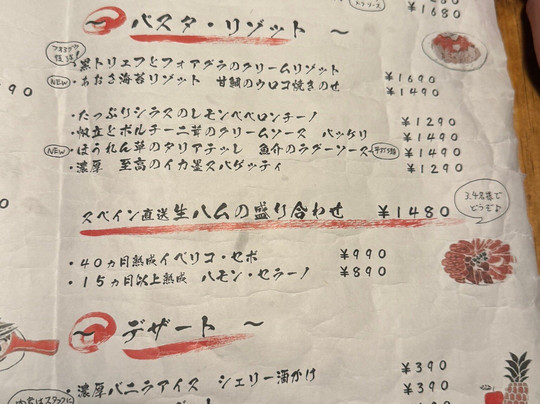 ¥1680
〜 パスタ・リゾット 〜
・黒トリュフとフォアグラのクリームリゾット ¥1690
NEW ・あおさ海苔リゾット 甘鯛のウロコ焼きのせ ¥1490
・たっぷりシラスのレモンペペロンチーノ ¥1290
・帆立とポルチーニ茸のクリームソース パッケリ ¥1490
NEW ・ほうれん草のタリアテッレ 魚介のラグーソース ¥1490
・濃厚 至高のイカ墨スパゲッティ ¥1290
スペイン直送生ハムの盛り合わせ ¥1480
3,4名様でどうぞ♪
・40ヵ月熟成イベリコ・セボ ¥990
・15ヵ月以上熟成 ハモン・セラーノ ¥890
〜 デザート 〜
・濃厚バニラアイス シェリー酒がけ ¥390
¥390